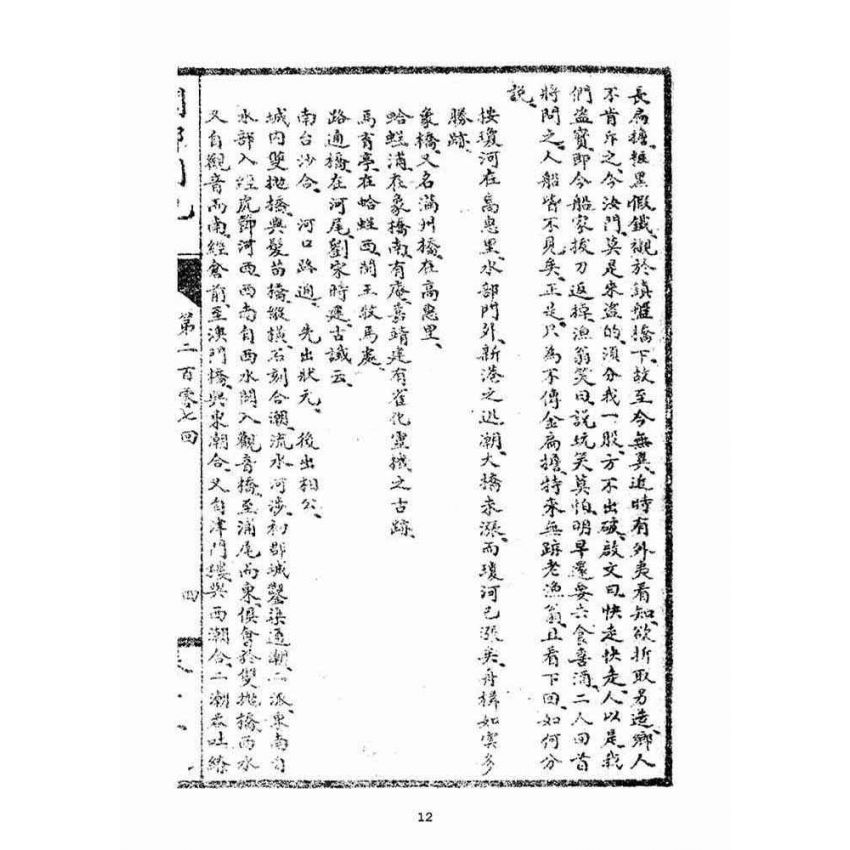 長扁擔桓黑假鐵襯於鎮雅橋下故至今無異近時有外夷看知欲折取另造鄉人
不肯斥之今汝門莫是來盜的須分我一股方不出破啟文曰快走快走人以是我
們盜寶即今船家拔刀返掉漁翁笑曰説玩笑莫怕明早還要六食喜酒二人回首
將問之人船皆不見矣正是只為不傳金扁擔特來無跡老漁翁且看下回如何分
説
按瓊河在高惠里水部門外新港之迯潮大橋未漲而瓊河已漲矣舟楫如雲多
勝跡
象橋又名滿州橋在高惠里
蛤蜌浦在象橋南有庵嘉靖建有雀化靈機之古跡
馬育亭在蛤蜌西閩王牧馬處
路通橋在河尾劉家時建古讖云
南台沙合 河口路通 先出狀元 後出相公
城内雙拋橋與髮苗橋縱橫石刻合潮流水河涉初郡城鑿渠通潮二派東南自
水部入經虎節河西西南自西水関入觀音橋至浦尾而東俱會於雙拋橋西水
又自觀音而南經倉前至澳門橋與東潮合又自津門樓與西潮合二潮吞吐繚
第二百零七回
四
12